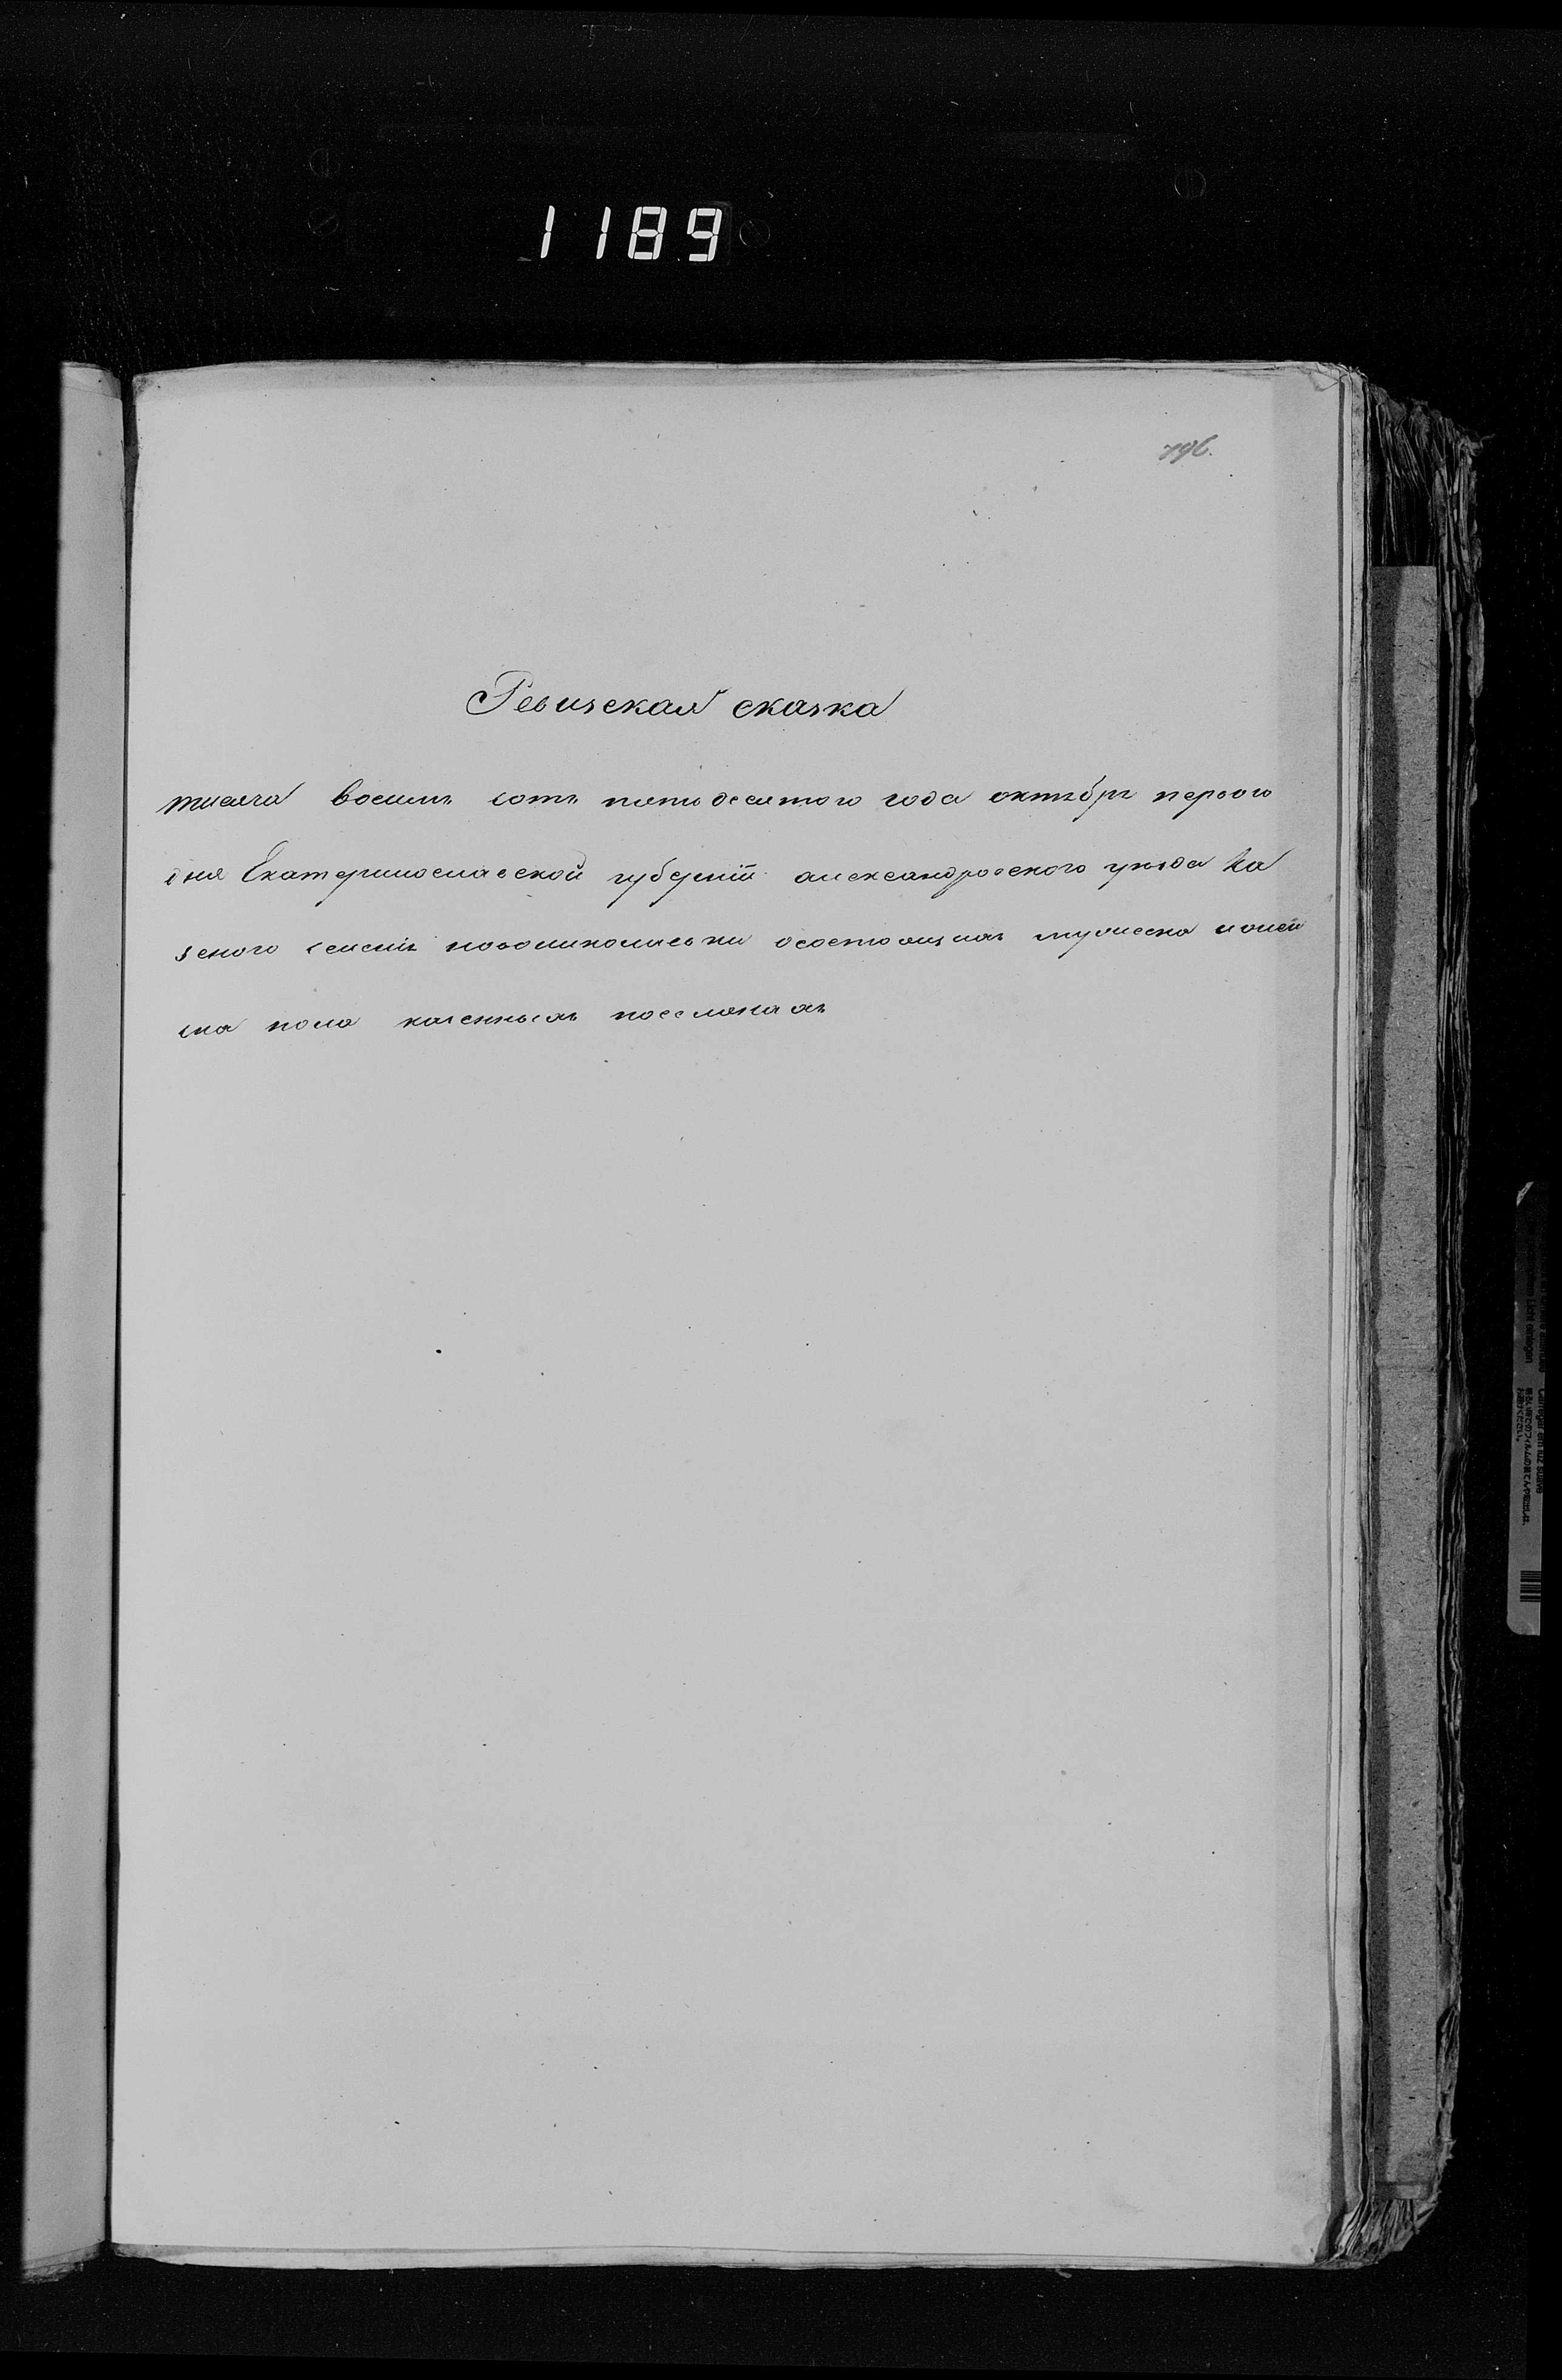 1189
796.
Ревизская сказка
тисяча восимъ сотъ пятьдесятого года октебря первого
дня Екатеринославской губерніи александровского уезда Ка
зеного селенія новониколаевки осостоящихъ мужеска иженс
ка пола казенныхъ поселянахъ